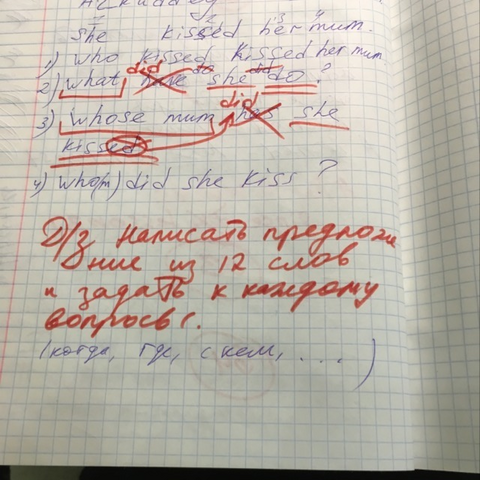 1 2 3 4
she kissed her mum.
1) who kissed kissed her mum
did do did
2) what have she do ?
did
3) whose mum has she
kissed
4) who(m) did she kiss ?
Д/з Написать предложе
ние из 12 слов
и задать к каждому
вопросы.
(когда, где, с кем, . . . )